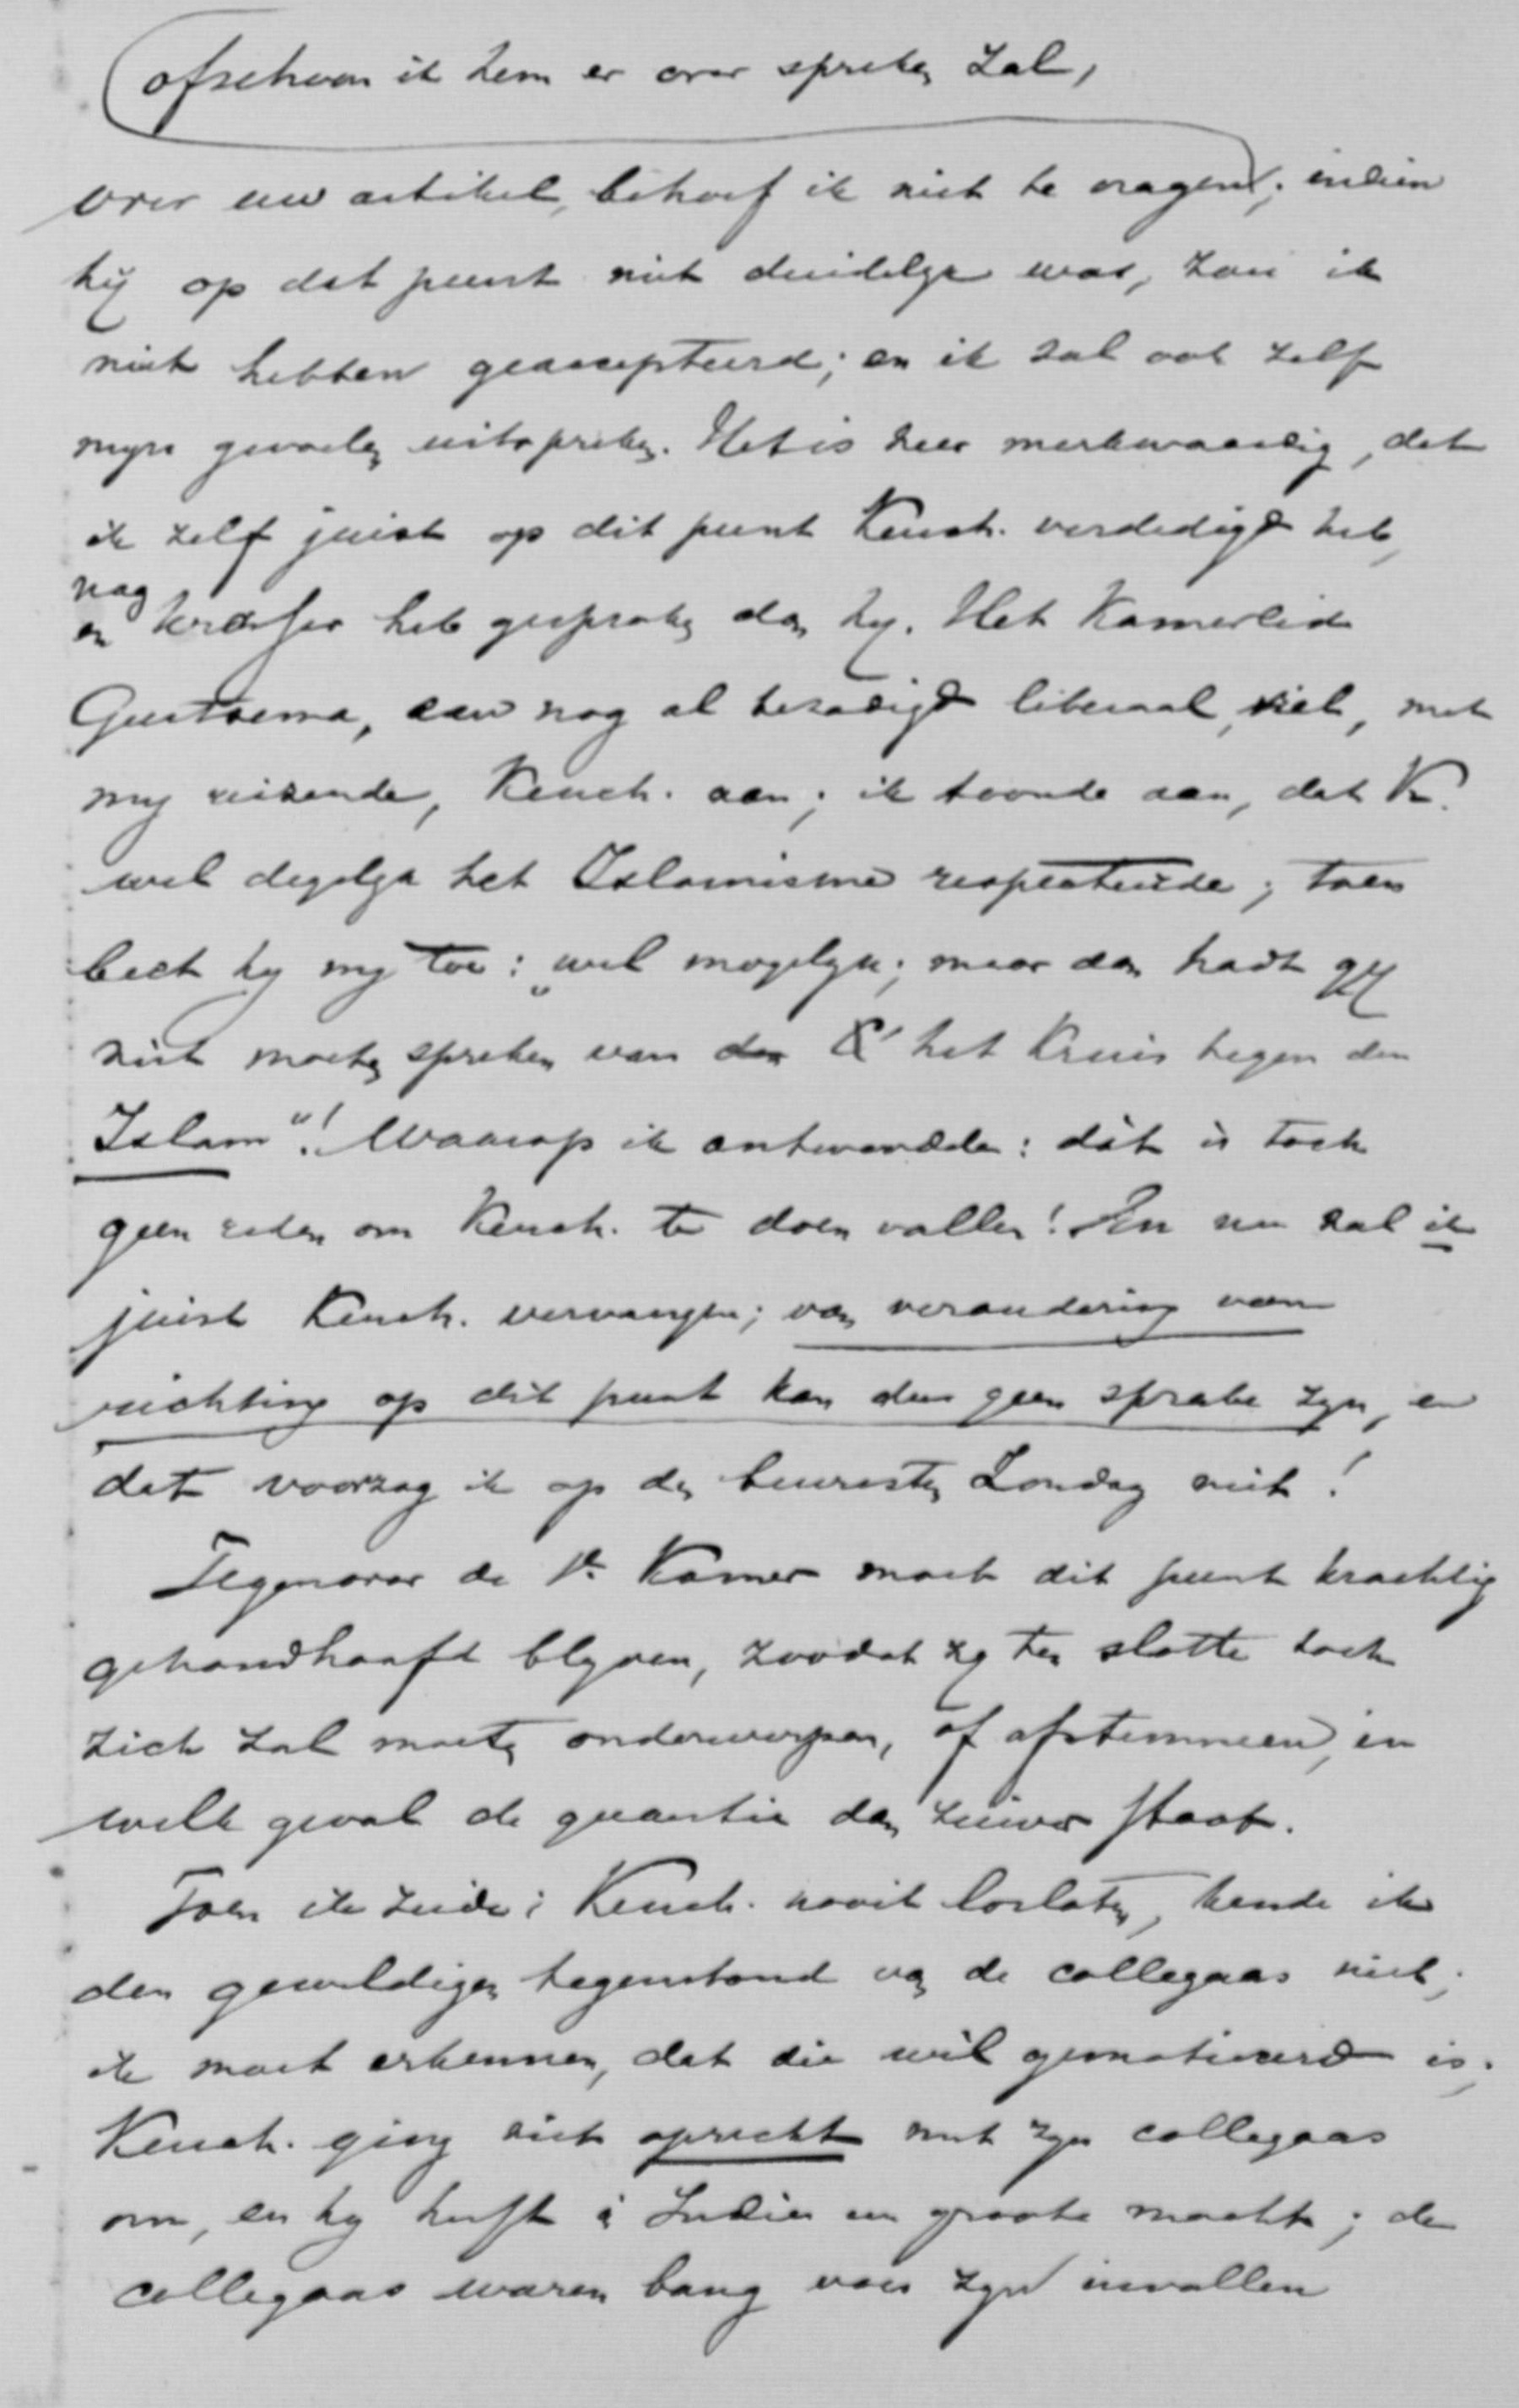 ofschoon ik hem er over spreken zal,
over uw artikel, behoef ik niet te vragen; indien
hij op dat punt niet duidelijk was, zou ik
niet hebben geaccepteerd; en ik zal ook zelf
mijn gevoelen uitspreken. Het is zeer merkwaardig, dat
ik zelf juist op dit punt Keuch. verdedigd heb,
en nog krasser heb gesproken dan hij. Het Kamerlid
Geertsema, een nog al bezadigd liberaal, viel, met
mij reizende, Keuch. aan; ik toonde aan, dat K.
wel degelijk het Islamisme respecteerde; toen
beet hij mij toe: „wel mogelijk; maar dan hadt gij
niet moeten spreken van het Kruis tegen den
Islam"! Waarop ik antwoordde: dát is toch
geen reden om Keuch. te doen vallen! En nu zal ik
juist Keuch. vervangen; van verandering van
richting op dit punt kan dus geen sprake zijn, en
dat voorzag ik op den bewusten Zondag niet!
Tegenover de 1e Kamer moet dit punt krachtig
gehandhaafd blijven, zoodat zij ten slotte toch
zich zal moeten onderwerpen, of afstemmen, in
welk geval de quaestie dan zuiver staat.
Toen ik zeide: Keuch. nooit loslaten, kende ik
den geweldigen tegenstand van de collegaas niet;
ik moet erkennen, dat die wel gemotiveerd is;
Keuch. ging niet oprecht met zijn collegaas
om, en hij heeft in Indië een groote macht; de
collegaas waren bang voor zijn invallen